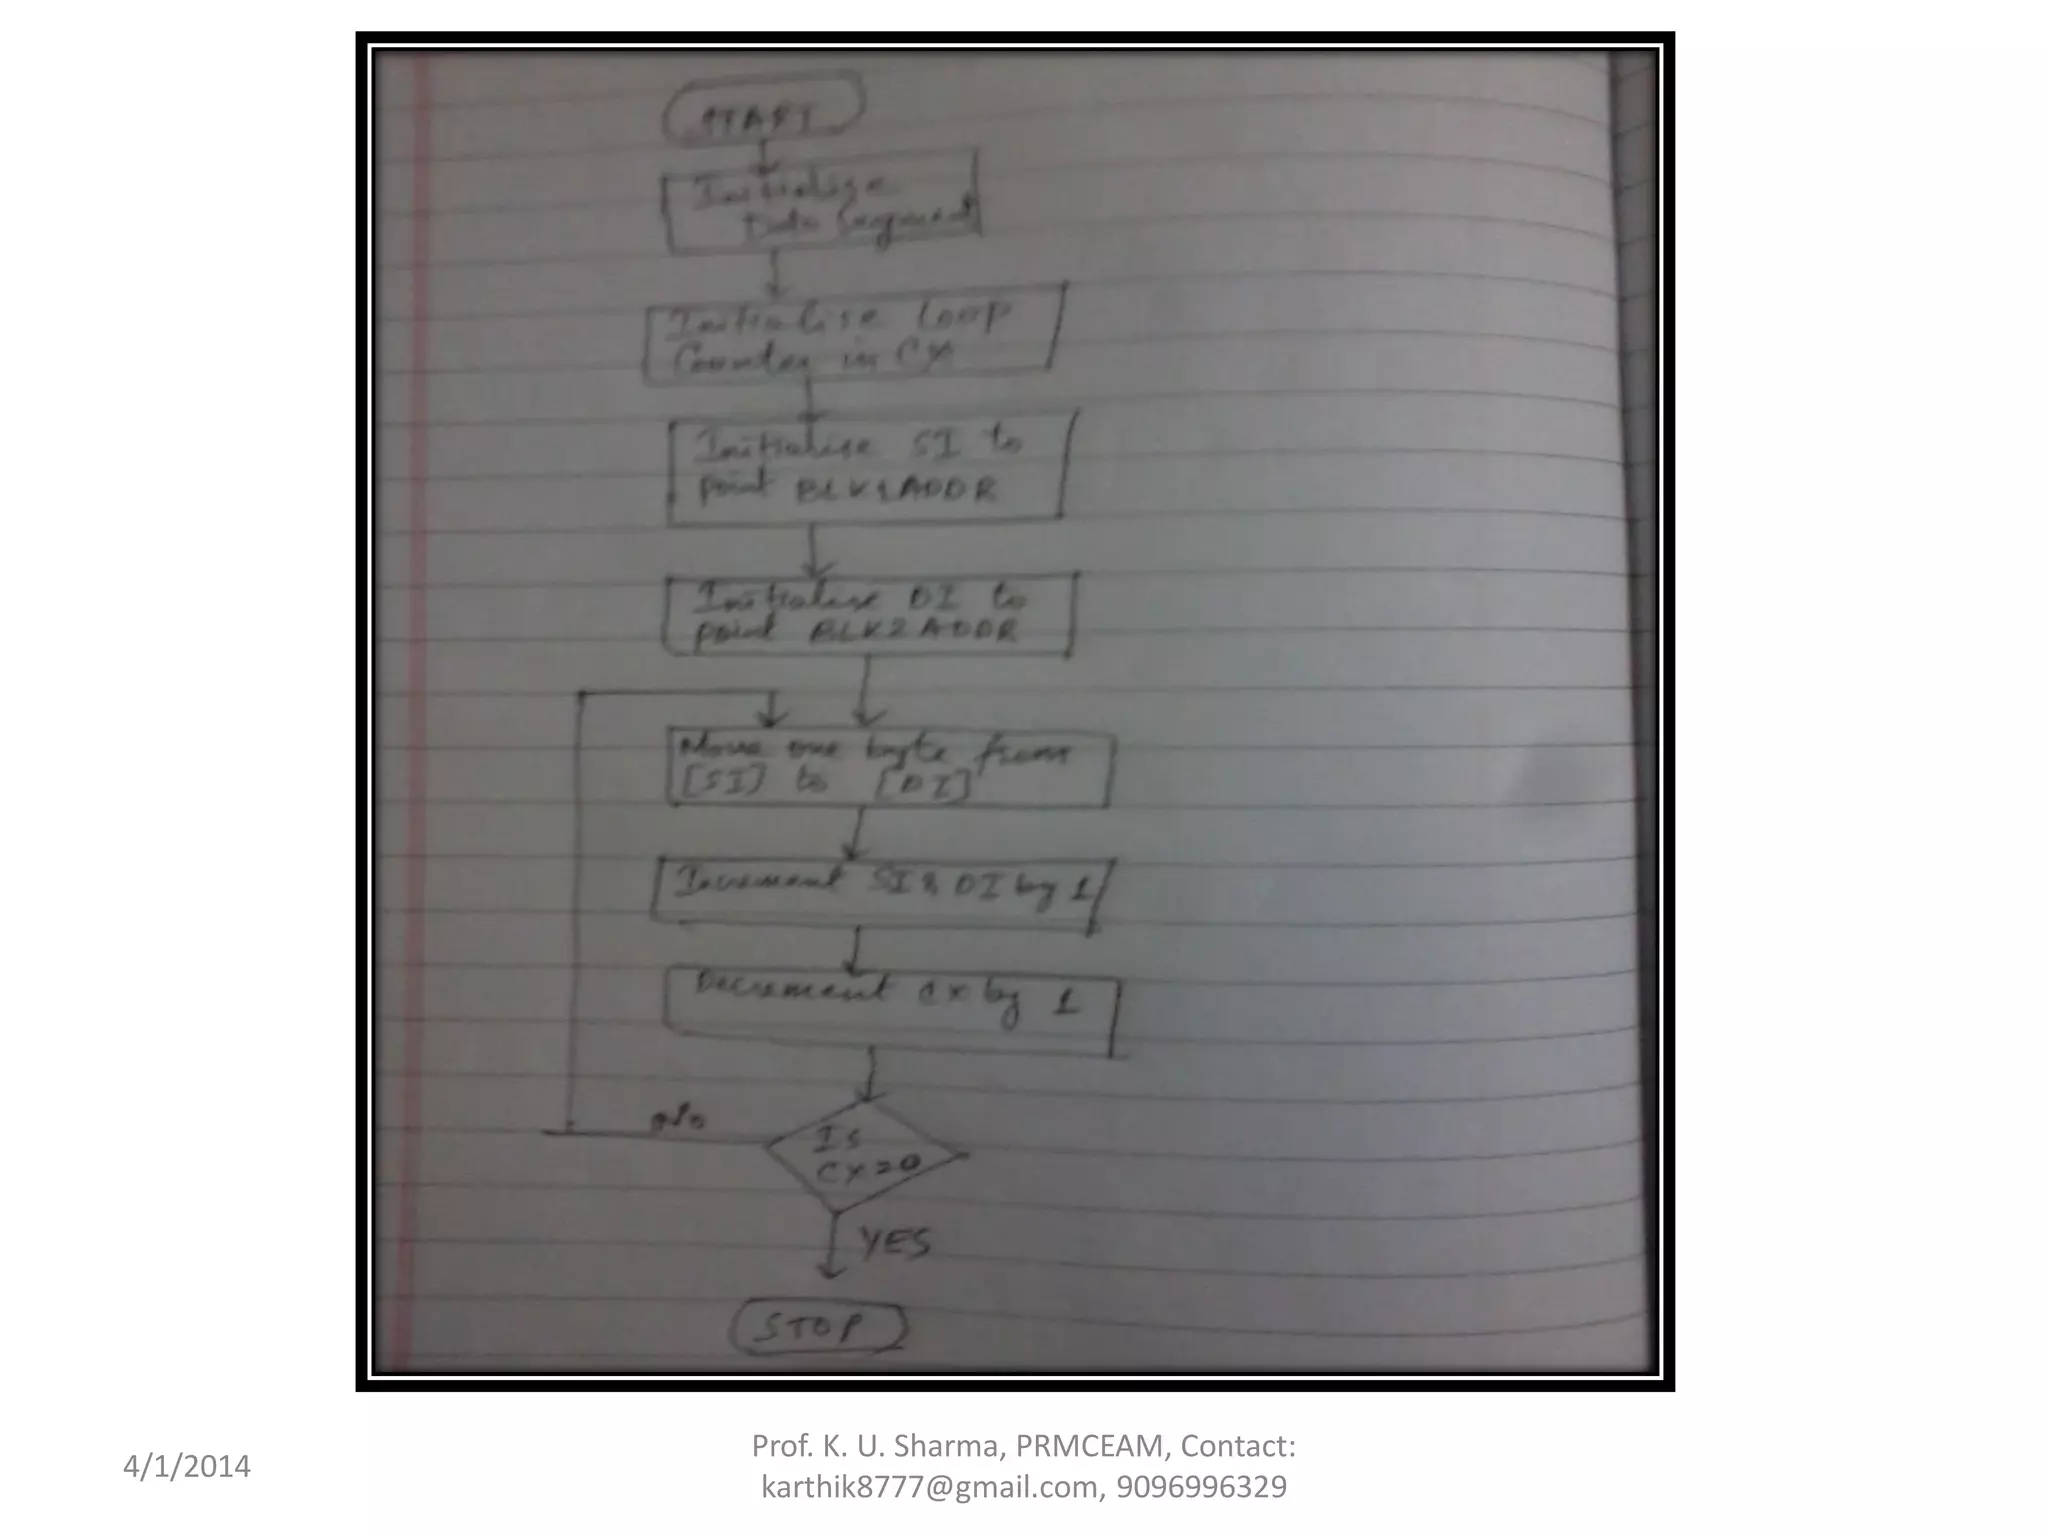 START
Initialise
Data Segment
Initialise Loop
Counter in CX
Initialise SI to
point BLK1ADDR
Initialise DI to
point BLK2ADDR
Move one byte from
[SI] to [DI]
Increment SI & DI by 1
Decrement CX by 1
No
Is
CX=0
YES
STOP
4/1/2014
Prof. K. U. Sharma, PRMCEAM, Contact:
karthik8777@gmail.com, 9096996329